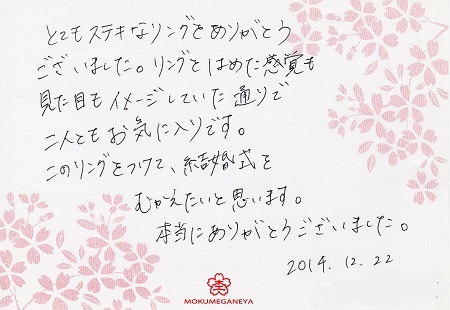 とてもステキなリングをありがとう
ございました。リングをはめた感覚も
見た目もイメージしていた通りで
二人ともお気に入りです。
このリングをつけて、結婚式を
むかえたいと思います。
本当にありがとうございました。
2014.12.22
MOKUMEGANEYA